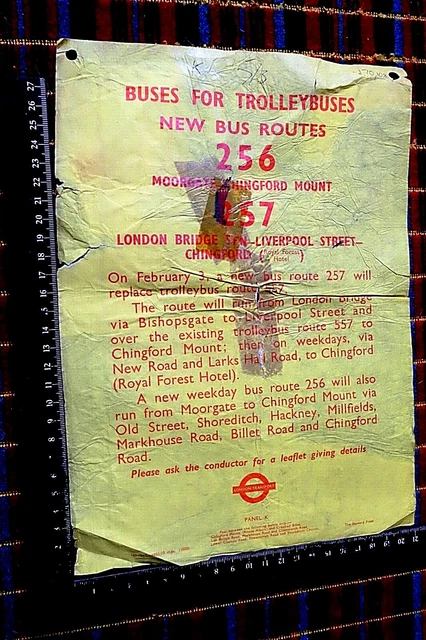 BUSES FOR TROLLEYBUSES
NEW BUS ROUTES
256
MOORGATE CHINGFORD MOUNT
257
LONDON BRIDGE STN–LIVERPOOL STREET–
CHINGFORD (Royal Forest Hotel)
On February 3, a new bus route 257 will
replace trolleybus route 557.
The route will run from London Bridge
via Bishopsgate to Liverpool Street and
over the existing trolleybus route 557 to
Chingford Mount; then on weekdays, via
New Road and Larks Hall Road, to Chingford
(Royal Forest Hotel).
A new weekday bus route 256 will also
run from Moorgate to Chingford Mount via
Old Street, Shoreditch, Hackney, Millfields,
Markhouse Road, Billet Road and Chingford
Road.
Please ask the conductor for a leaflet giving details
LONDON TRANSPORT
PANEL K